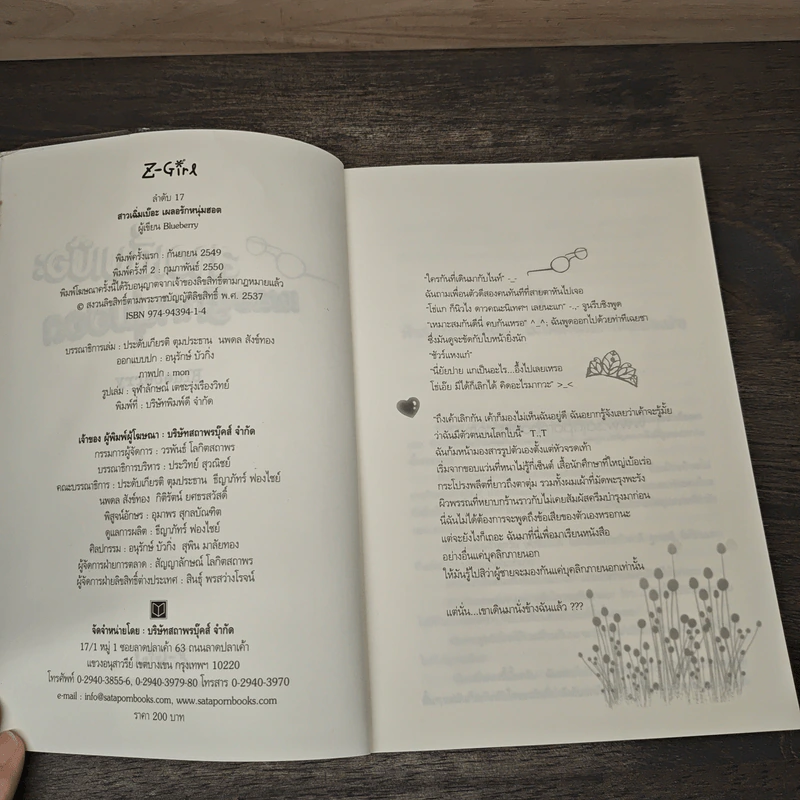 Z-Girl
ลำดับ 17
สาวเฉิ่มเบ๊อะ เผลอรักหนุ่มฮอต
ผู้เขียน Blueberry
พิมพ์ครั้งแรก : กันยายน 2549
พิมพ์ครั้งที่ 2 : กุมภาพันธ์ 2550
พิมพ์โฆษณาครั้งนี้ได้รับอนุญาตจากเจ้าของลิขสิทธิ์ตามกฎหมายแล้ว
© สงวนลิขสิทธิ์ตามพระราชบัญญัติลิขสิทธิ์ พ.ศ. 2537
ISBN 974-94394-1-4
บรรณาธิการเล่ม : ประดับเกียรติ ตุมประธาน นพดล สังข์ทอง
ออกแบบปก : อนุรักษ์ บัวกิ่ง
ภาพปก : mon
รูปเล่ม : จุฬาลักษณ์ เดชะรุ่งเรืองวิทย์
พิมพ์ที่ : บริษัทพิมพ์ดี จำกัด
เจ้าของ ผู้พิมพ์ผู้โฆษณา : บริษัทสถาพรบุ๊คส์ จำกัด
กรรมการผู้จัดการ : วรพันธ์ โลกิตสถาพร
บรรณาธิการบริหาร : ประวิทย์ สุวณิชย์
คณะบรรณาธิการ : ประดับเกียรติ ตุมประธาน ธีญาภัทร์ ฟองไชย์
นพดล สังข์ทอง กิติรัตน์ ยศธรสวัสดิ์
พิสูจน์อักษร : อุมาพร สุกลบัณฑิต
ดูแลการผลิต : ธีญาภัทร์ ฟองไชย์
ศิลปกรรม : อนุรักษ์ บัวกิ่ง สุพิน มาลัยทอง
ผู้จัดการฝ่ายการตลาด : สัญญาลักษณ์ โลกิตสถาพร
ผู้จัดการฝ่ายลิขสิทธิ์ต่างประเทศ : สินธุ์ พรสว่างโรจน์
จัดจำหน่ายโดย : บริษัทสถาพรบุ๊คส์ จำกัด
17/1 หมู่ 1 ซอยลาดปลาเค้า 63 ถนนลาดปลาเค้า
แขวงอนุสาวรีย์ เขตบางเขน กรุงเทพฯ 10220
โทรศัพท์ 0-2940-3855-6, 0-2940-3979-80 โทรสาร 0-2940-3970
e-mail : info@satapornbooks.com, www.satapornbooks.com
ราคา 200 บาท
"ใครกันที่เดินมากับไนท์" -_-
ฉันถามเพื่อนตัวดีสองคนทันทีที่สายตาหันไปเจอ
"โซ่แก ก็นิวไง ดาวคณะนิเทศฯ เลยนะแก" -.,- ฐูนรีบชิงพูด
"เหมาะสมกันดีนี่ คบกันเหรอ" ^_^; ฉันพูดออกไปด้วยท่าทีเฉยชา
ซึ่งมันดูจะขัดกับใบหน้ายิ่งนัก
"ชัวร์แหงแก"
"นี่ยัยปาย แกเป็นอะไร...อึ้งไปเลยเหรอ
โซ่เอ๊ย มีได้ก็เลิกได้ คิดอะไรมากวะ" >_<
"ถึงเค้าเลิกกัน เค้าก็มองไม่เห็นฉันอยู่ดี ฉันอยากรู้จังเลยว่าเค้าจะรู้มั้ย
ว่าฉันมีตัวตนบนโลกใบนี้" T_T
ฉันก้มหน้ามองสารรูปตัวเองตั้งแต่หัวจรดเท้า
เริ่มจากขอบแว่นที่หนาไม่รู้กี่เซ็นต์ เสื้อนักศึกษาที่ใหญ่เบ้อเร่อ
กระโปรงพลีตที่ยาวถึงตาตุ่ม รวมทั้งผมเผ้าที่มัดพะรุงพะรัง
ผิวพรรณที่หยาบกร้านราวกับไม่เคยสัมผัสครีมบำรุงมาก่อน
นี่ฉันไม่ได้ต้องการจะพูดถึงข้อเสียของตัวเองหรอกนะ
แต่จะยังไงก็เถอะ ฉันมาที่นี่เพื่อมาเรียนหนังสือ
อย่างอื่นแค่บุคลิกภายนอก
ให้มันรู้ไปสิว่าผู้ชายจะมองกันแค่บุคลิกภายนอกเท่านั้น
แต่นั่น...เขาเดินมานั่งข้างฉันแล้ว ???